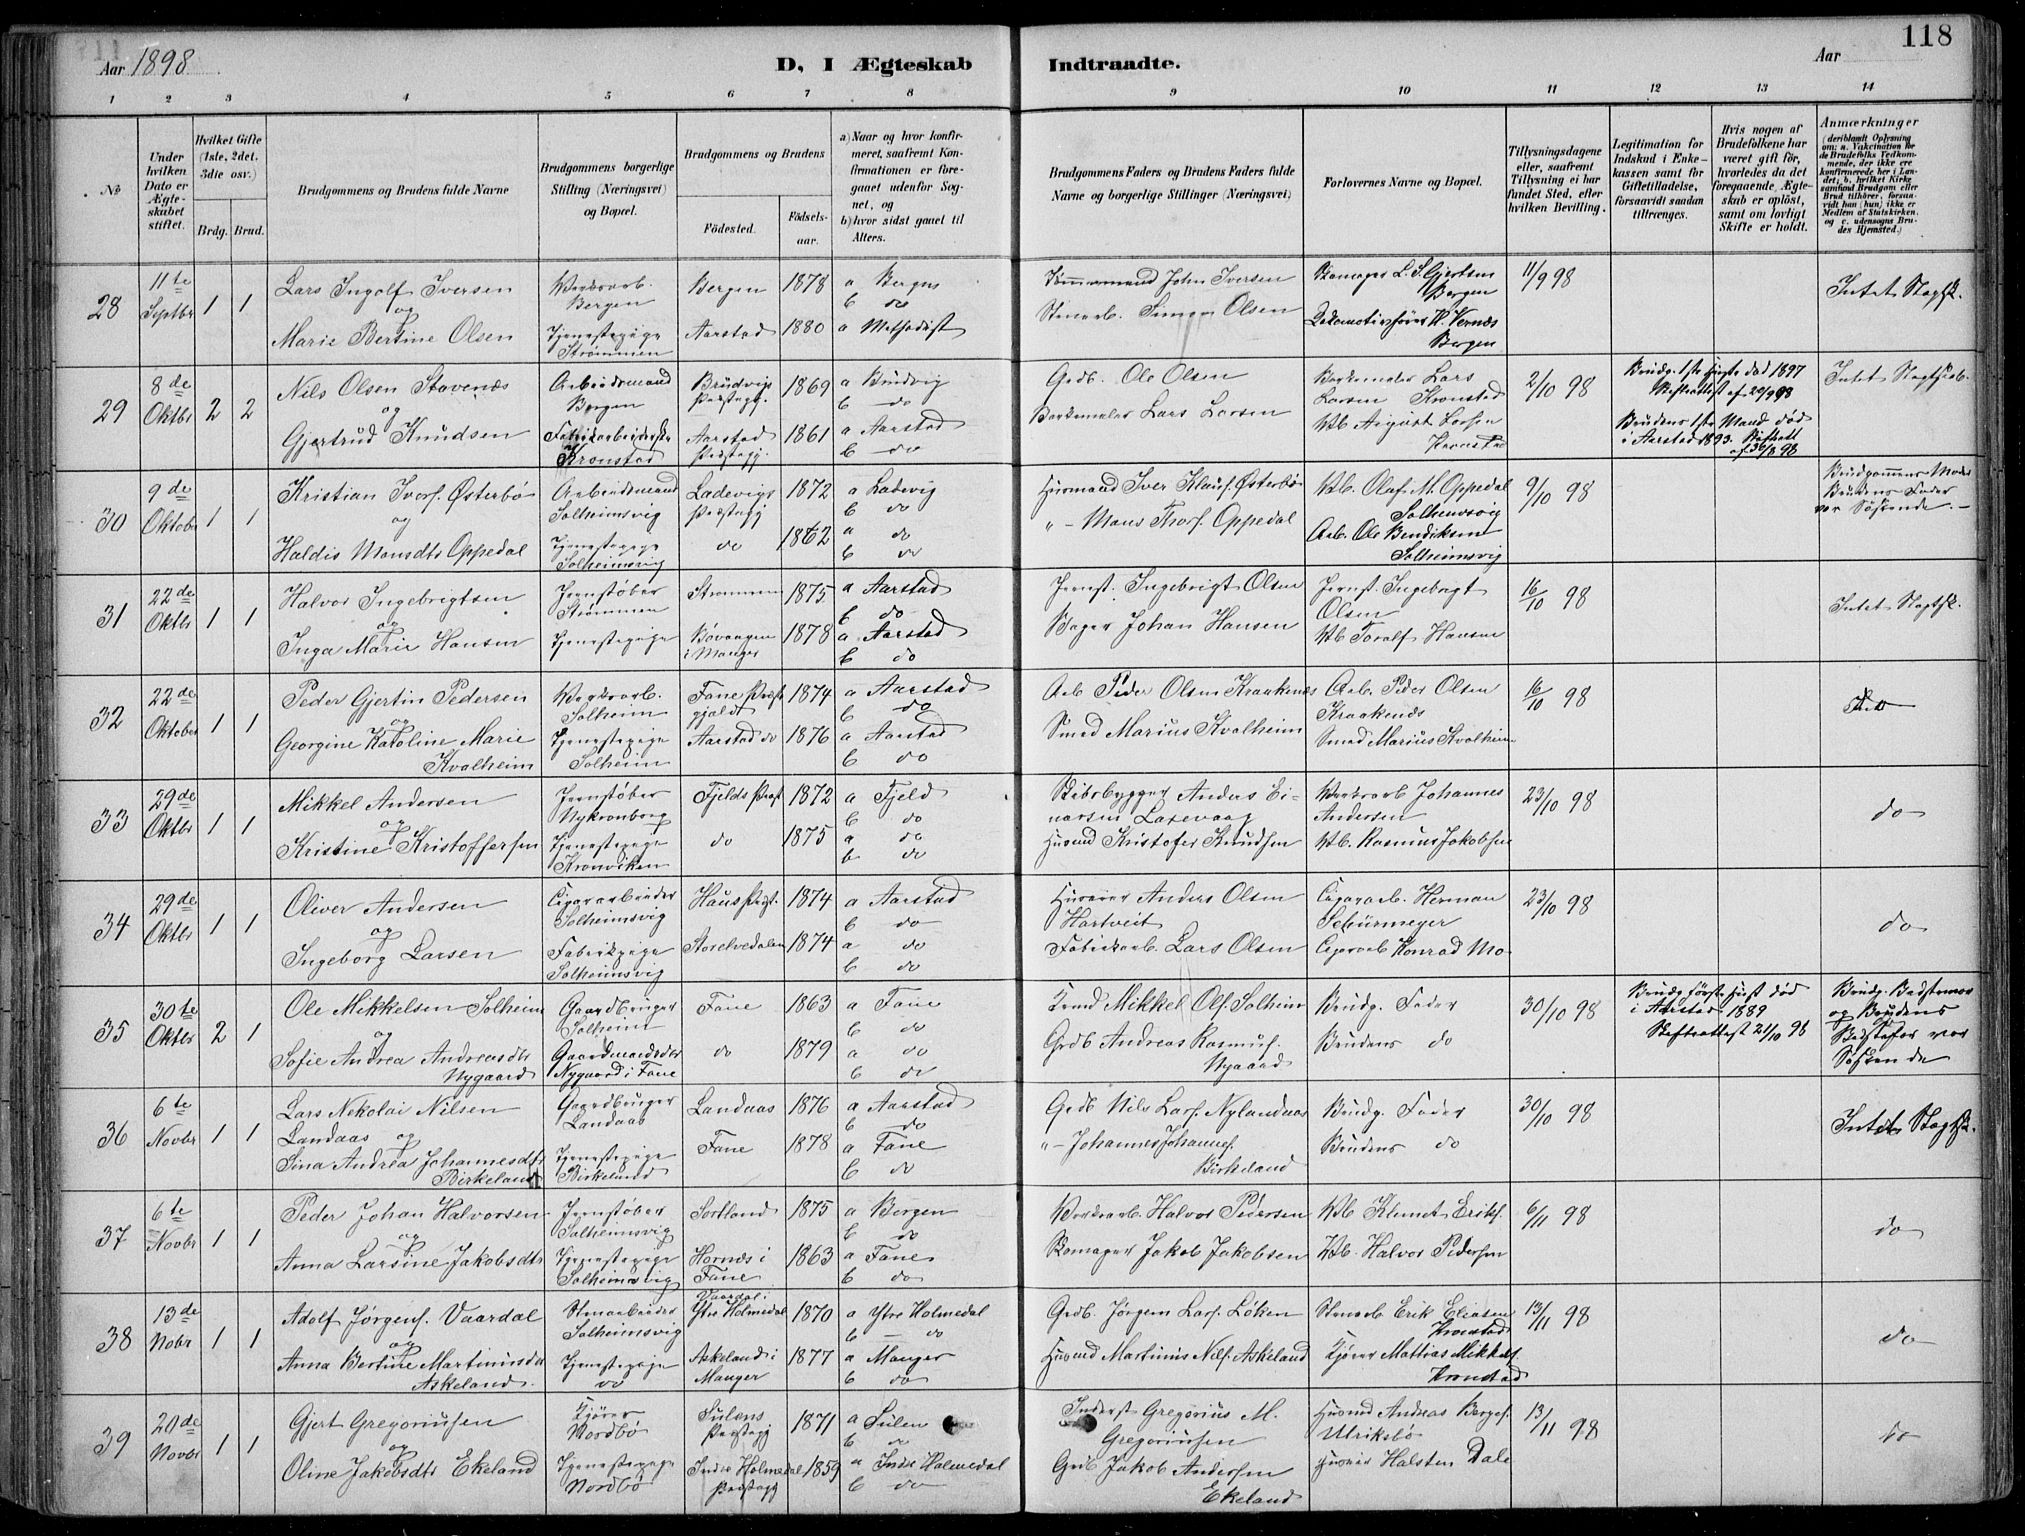 118
Aar 1898
D, I Ægteskab Indtraadte.
Aar
1 2 3 4 5 6 7 8 9 10 11 12 13 14
No
Under hvilken Dato er Ægteskabet stiftet.
Hvilket Gifte (1ste, 2det, 3die osv.)
Brdg. Brud.
Brudgommens og Brudens fulde Navne
Brudgommens borgerlige Stilling (Næringsvei) og Bopæl.
Brudgommens og Brudens
Födested.
Födselsaar.
a) Naar og hvor konfirmeret, saafremt Konfirmationen er foregaaet udenfor Sognet, og
b) hvor sidst gaaet til Alters.
Brudgommens Faders og Brudens Faders fulde Navne og borgerlige Stillinger (Næringsvei)
Forlovernes Navne og Bopæl.
Tillysningsdagene eller, saafremt Tillysning ei har fundet Sted, efter hvilken Bevilling.
Legitimation for Indskud i Enkekassen samt for Giftetilladelse, forsaavidt saadan tiltrænges.
Hvis nogen af Brudefolkene har været gift för, hvorledes da det foregaaende Ægteskab er oplöst, samt om lovligt Skifte er holdt.
Anmærkninger (deriblandt Oplysning om: a. Vakcination for de Brudefolks Vedkommende, der ikke ere konfirmerede her i Landet; b. hvilket Kirkesamfund Brudgom eller Brud tilhörer, forsaavidt han (hun) ikke er Medlem af Statskirken, og c. udensogns Brudes Hjemsted.)
28 11te Septbr 1 1
Lars Ingolf Iversen
og
Marie Bertine Olsen
Værksarb. Bergen
Tjenestepige Strømmen
Bergen 1878 a Bergen b do
Aarstad 1880 a Methodist
Tømmermand John Iversen
Stenarb. Simon Olsen
Skomager L. S. Gjertsen Bergen
Lokomotivfører H. Vernæs Bergen
11/9 98
Intet Slagtsk.
29 8de Oktbr 2 2
Nils Olsen Stavenæs
og
Gjertrud Knudsen
Arbeidsmand Bergen
Fabrikarbeiderske Kronstad
Brudvigs Præstegj. 1869 a Brudvig b do
Aarstad Præstegj. 1861 a Aarstad b do
Grdb. Ole Olsen
Værksmaler Lars Larsen
Værksmaler Lars Larsen Kronstad
Vb August Larsen Kronstad
2/10 98
Brudg. 1ste Hustru død 1897 Skifteattest af 29/9 98
Brudens 1ste Mand død i Aarstad 1893. Skifteatt af 30/8 98
Intet Slagtskab.
30 9de Oktober 1 1
Kristian Ivers. Østerbø
og
Haldis Monsdtr Oppedal
Arbeidsmand Solheimsvig
Tjenestepige Solheimsvig
Ladevigs Præstegj 1872 a Ladevig b do
do 1862 a do b do
Husmand Iver Klaus. Østerbø
" - Mons Thors. Oppedal
Vb. Olaf M. Oppedal Solheimsvig
Arb. Ole Bendiksen Solheimsvig
9/10 98
Brudgommens Moder Brudens Fader var Søskende. -
31 22de Oktbr 1 1
Halvor Ingebrigtsen
og
Inga Marie Hansen
Jernstøber Strømmen
Tjenestepige
Strømmen 1875 a Aarstad b do
Bøvaagen i Manger 1878 a Aarstad b do
Jernst. Ingebrigt Olsen
Bager Johan Hansen
Jernst. Ingebrigt Olsen
Vb Toralf Hansen
16/10 98
Intet Slagtsk.
32 22de Oktober 1 1
Peder Gjertin Pedersen
og
Georgine Karoline Marie Kvalheim
Værksarb. Solheim
Tjenestepige Solheim
Fane Præstegjeld 1874 a Aarstad b do
Aarstad do 1876 a Aarstad b do
Arb Peder Olsen Kraakenæs
Smed Marius Kvalheim
Arb. Peder Olsen Kraakenæs
Smed Marius Kvalheim
16/10 98
do
33 29de Oktbr 1 1
Mikkel Andersen
og
Kristine Kristoffersen
Jernstøber Nykronborg
Tjenestepige Kronviken
Fjelds Præst 1872 a Fjeld b do
do 1875 a do b do
Skibsbygger Anders Einarsen Laxevaag
Husmd Kristofer Knudsen
Værksarb Johannes Andersen
Vb. Rasmus Jakobsen
23/10 98
do
34 29de Oktbr 1 1
Oliver Andersen
og
Ingeborg Larsen
Cigararbeider Solheimsvig
Fabrikpige Solheimsvig
Haus Præst. 1874 a Aarstad b do
Storelvedalen 1874 a do b do
Husmd Anders Olsen Hartveit
Fabrikarb. Lars Olsen
Cigararb. Herman Schürmeyer
Cigararb Konrad Mo
23/10 98
do
35 30te Oktbr 2 1
Ole Mikkelsen Solheim
og
Sofie Andrea Andreasdtr Nygaard
Gaardbruger Solheim
Gaardmandsdtr Nygaard i Fane
Fane 1863 a Fane b do
do 1879 a do b do
Mikkel Ols. Solheim
Grdb Andreas Rasmus. Nygaard
Brudg. Fader
Brudens do
30/10 98
Brudg første Hust død i Aarstad 1889 Skifteattest 21/10 98
Brudg. Bedstemor og Brudens Bedstefar var Søskende
36 6te Novbr 1 1
Lars Nekolai Nilsen Landaas
og
Sina Andrea Johannesdtr Birkeland
Gaardbruger Landaas
Tjenestepige Birkeland
Landaas 1876 a Aarstad b do
Fane 1878 a Fane b do
Grdb Nils Lars. Nylandaas
" - Johannes Johannes. Birkeland
Brudg. Fader
Brudens do
30/10 98
Intet Slagtsk.
37 6te Novbr 1 1
Peder Johan Halvorsen
og
Anna Larsine Jakobsdtr
Jernstøber Solheimsvig
Tjenestepige Solheimsvig
Sortland 1875 a Bergen b do
Hornæs i Fane 1863 a Fane b do
Værksarb. Halvor Pedersen
Skomager Jakob Jakobsen
Vb Klemet Eriks.
Vb. Halvor Pedersen
6/11 98
do
38 13de Nobr 1 1
Adolf Jørgens. Vaardal
og
Anna Bertine Martinusdtr Askeland.
Stenarbeider Solheimsvig
Tjenestepige do
Vaardal i Ytre Holmedal 1870 a Ytre Holmedal b - do
Askeland i Manger 1877 a Manger b do
Grdb. Jørgen Lars. Løken
Husmd Martinus Nils. Askeland
Stenarb Erik Eliasen Kronstad
Kjører Mattias Mikkels. Kronstad
13/11 98
do
39 20de Novbr 1 1
Gjert Gregoriussen
og
Oline Jakobsdtr Ekeland
Kjører Nordbø
Tjenestepige Nordbø
Sulens Præstegj 1871 a Sulen b do
Indre Holmedal Præstegj 1859 a Indre Holmedal b do
Inderst Gregorius M. Gregoriussen
Grdb Jakob Andersen Ekeland
Husmd Andreas Berges. Ulriksbø
Husmd Halsten Dale
13/11 98
do